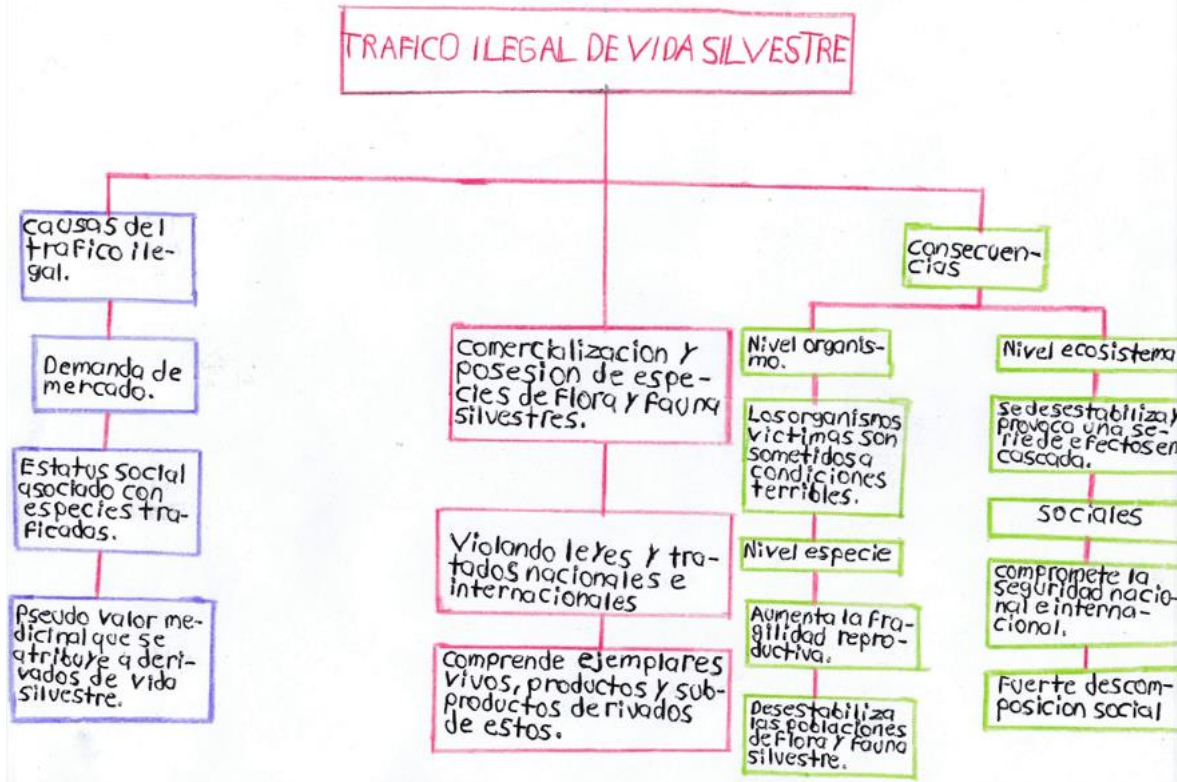 TRAFICO ILEGAL DE VIDA SILVESTRE
causas del
trafico ile-
gal.
Demanda de
mercado.
Estatus social
asociado con
especies tra-
ficadas.
Pseudo valor me-
dicinal que se
atribuye a deri-
vados de vida
silvestre.
comercializacion y
posesion de espe-
cies de flora y fauna
silvestres.
Violando leyes y tra-
tados nacionales e
internacionales
comprende ejemplares
vivos, productos y sub-
productos derivados
de estos.
cansecuen-
cias
Nivel organis-
mo.
Los organismos
victimas son
sometidos a
condiciones
terribles.
Nivel especie
Aumenta la fra-
gilidad repro-
ductiva.
Desestabiliza
las poblaciones
de flora y fauna
silvestre.
Nivel ecosistema
se desestabiliza y
provoca una se-
rie de efectos en
cascada.
sociales
compromete la
seguridad nacio-
nal e interna-
cional.
Fuerte descom-
posicion social